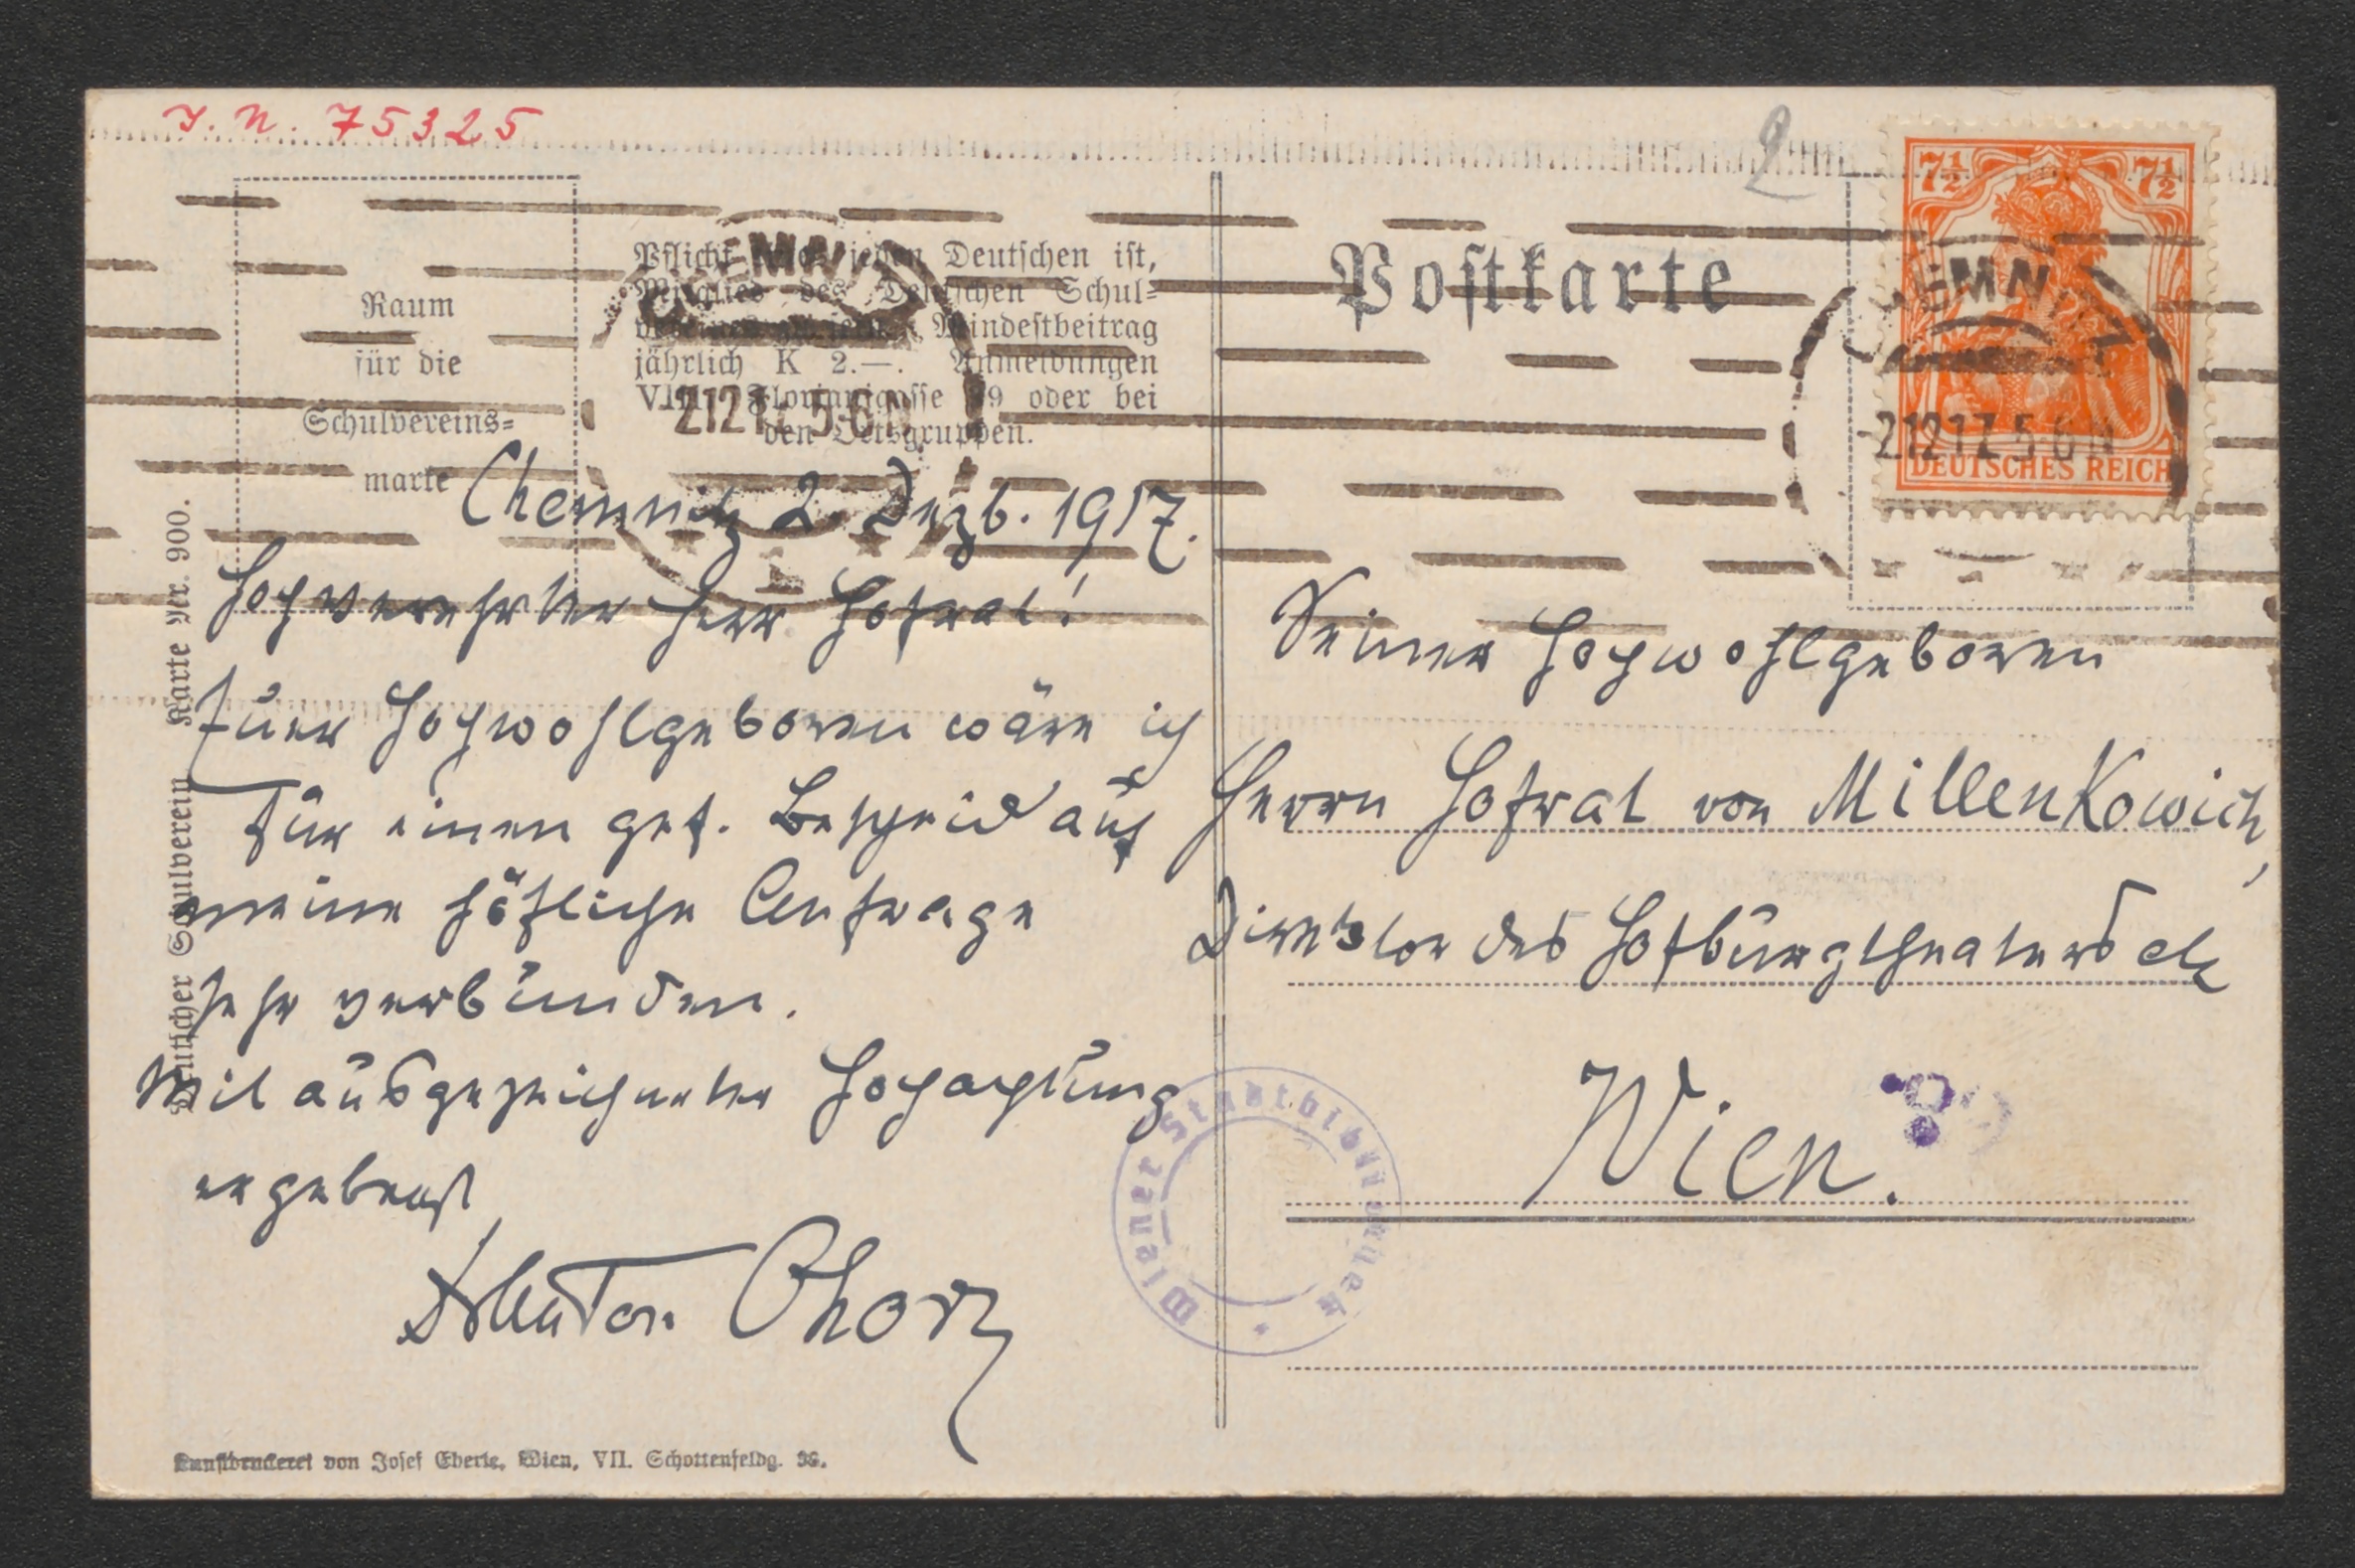 J. N. 75325
Raum
für die
Schulvereins-
marke
Pflicht jedes Deutschen ist,
Mitglied des Deutschen Schul-
vereines zu sein. Mindestbeitrag
jährlich K 2.—. Anmeldungen
VIII. Florianigasse 39 oder bei
den Ortsgruppen.
Chemnitz 2. Dezb. 1917.
Hochverehrter Herr Hofrat!
Euer Hochwohlgeboren wäre ich
für einen gef. Bescheid auf
meine höfliche Anfrage
sehr verbunden.
Mit ausgezeichneter Hochachtung
ergebenst
Anton Ohorn
Deutscher Schulverein Karte Nr. 900.
Kunstdruckerei von Josef Eberle, Wien, VII. Schottenfeldg. 38.
Postkarte
2
7½ 7½
DEUTSCHES REICH
CHEMNITZ
2 12 17 5-6 N
Seiner Hochwohlgeboren
Herrn Hofrat von Millenkowich,
Direktor des Hofburgtheaters etc
Wien.
Wiener Stadtbibliothek